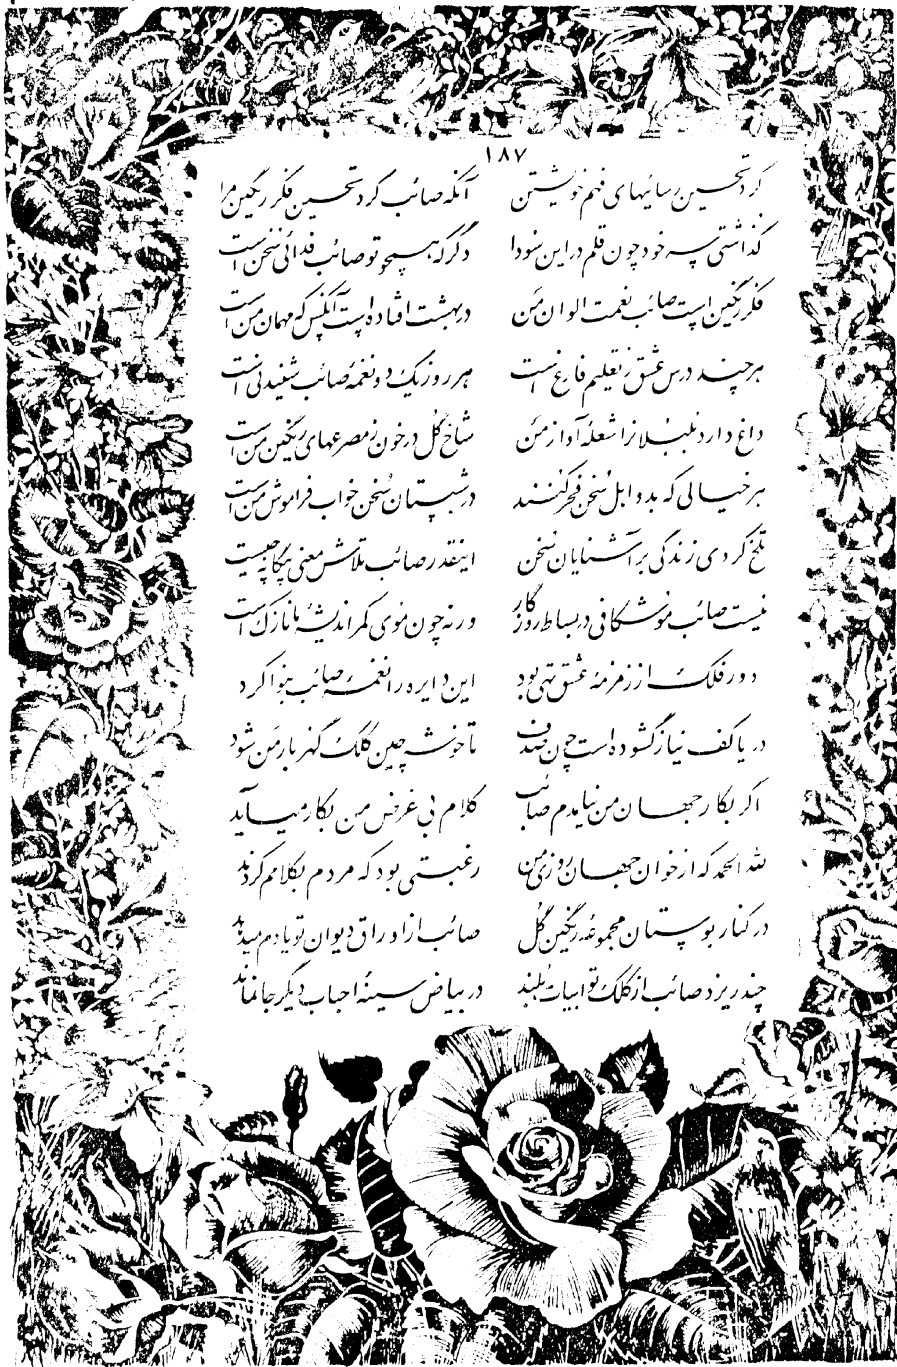 ۱۸۷
کرد تحسین رسائیهای فهم خویشتن آنکه صائب کرد تحسین فکر رنگین مرا
گذاشتی سر خود چون قلم در این سودا دگر که همچو تو صائب فدائی سخن است
فکر رنگین است صائب نعمت الوان من در بهشت افتاده است آنکس که مهمان من است
هر چند درس عشق ز تعلیم فارغ است هر روز یک دو نغمهٔ صائب شنیدنی است
داغ دارد بلبلانرا شعلهٔ آواز من شاخ گل در خون ز مصرعهای رنگین من است
هر خیالی که بدو اهل سخن فخر کنند در شبستان سخن خواب فراموش من است
تلخ کردی زندگی بر آشنایان سخن اینقدر صائب تلاش معنی بیگانه چیست
نیست صائب موشکافی در بساط روزگار ورنه چون موی کمر اندیشهٔ ما نازک است
دور فلک از زمزمهٔ عشق تهی بود این دایره را نغمهٔ صائب بنوا کرد
دریا کف نیاز گشوده است چون صدف تا خوشه چین کلک گهربار من شود
اگر بکار جهان من نیامدم صائب کلام بی غرض من بکار میآید
لله الحمد که از خوان جهان روزی من رغبتی بود که مردم بکلامم کردند
در کنار بوستان مجموعهٔ رنگین گل صائب از اوراق دیوان تو یادم میدهد
چند ریزد صائب از کلک تو ابیات بلند در بیاض سینهٔ احباب دیگر جا نماند